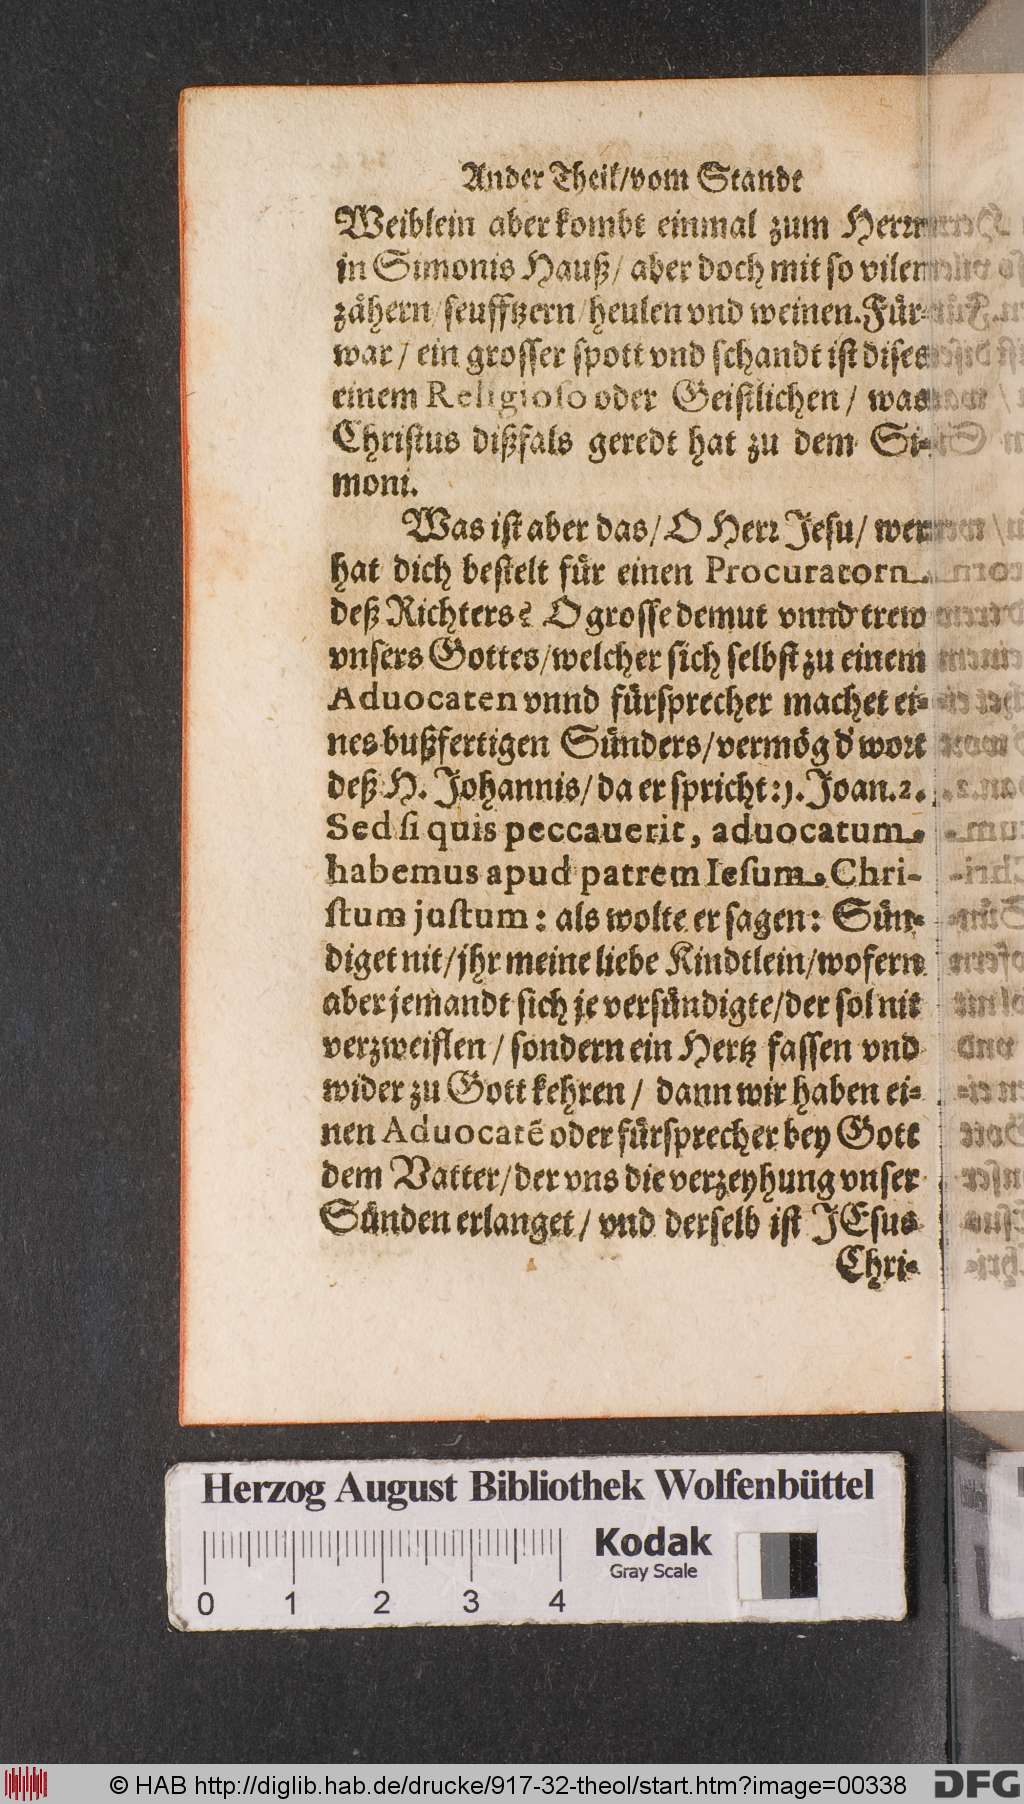 Ander Theil/vom Standt
Weiblein aber kombt einmal zum Herrn
in Simonis Hauß/ aber doch mit so vilen
zähern/seufftzern/heulen vnd weinen. Für-
war/ ein grosser spott vnd schandt ist dises
einem Religioso oder Geistlichen/ was
Christus dißfals geredt hat zu dem Si-
moni.
Was ist aber das/ O Herr Jesu/ wer
hat dich bestelt für einen Procuratorn
deß Richters? O grosse demut vnnd trew
vnsers Gottes/welcher sich selbst zu einem
Aduocaten vnnd fürsprecher machet ei-
nes bußfertigen Sünders/vermög d' wort
deß H. Johannis/ da er spricht: 1. Joan. 2.
Sed si quis peccauerit, aduocatum
habemus apud patrem Iesum Chri-
stum justum: als wolte er sagen: Sün-
diget nit/jhr meine liebe Kindtlein/wofern
aber jemandt sich je versündigte/der sol nit
verzweiflen/ sondern ein Hertz fassen vnd
wider zu Gott kehren/ dann wir haben ei-
nen Aduocatē oder fürsprecher bey Gott
dem Vatter/der vns die verzeyhung vnser
Sünden erlanget/ vnd derselb ist JEsus
Chri-
Herzog August Bibliothek Wolfenbüttel
Kodak
Gray Scale
0 1 2 3 4
© HAB http://diglib.hab.de/drucke/917-32-theol/start.htm?image=00338
DFG